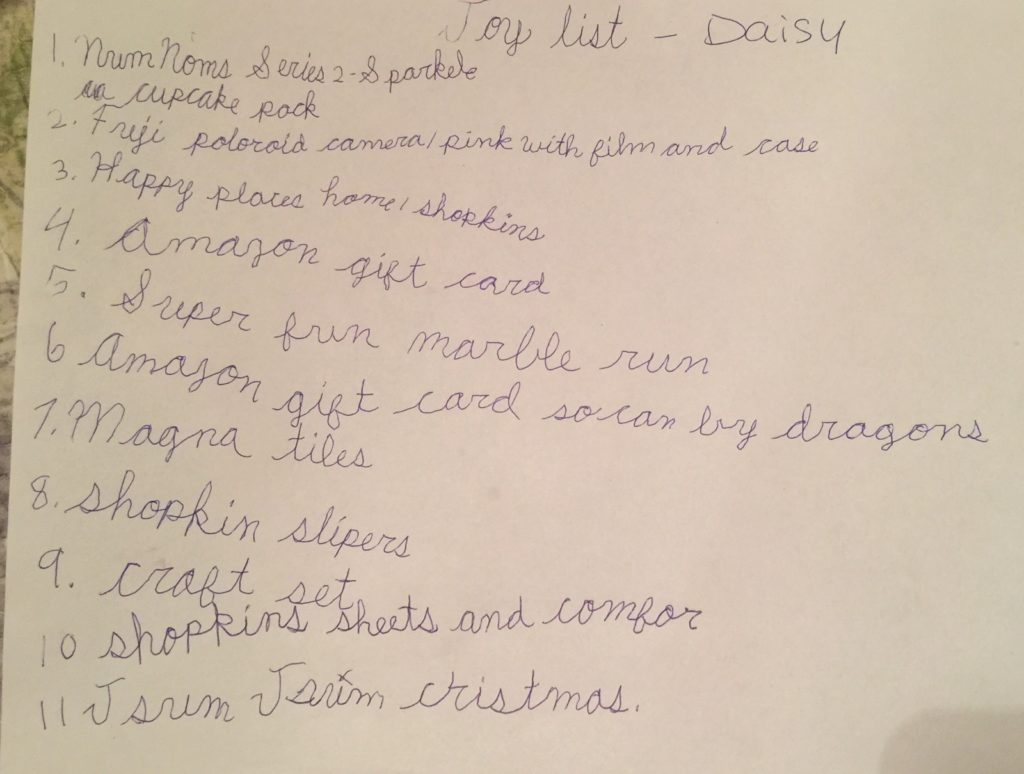 Toy list - Daisy
1. Num Noms Series 2-Sparkele
cupcake pack
2. Fuji poloroid camera/pink with film and case
3. Happy places home/shopkins
4. Amazon gift card
5. Super fun marble run
6 Amazon gift card so can by dragons
7. Magna tiles
8. shopkin slipers
9. craft set
10 shopkins sheets and comfor
11 Tsum Tsum cristmas.